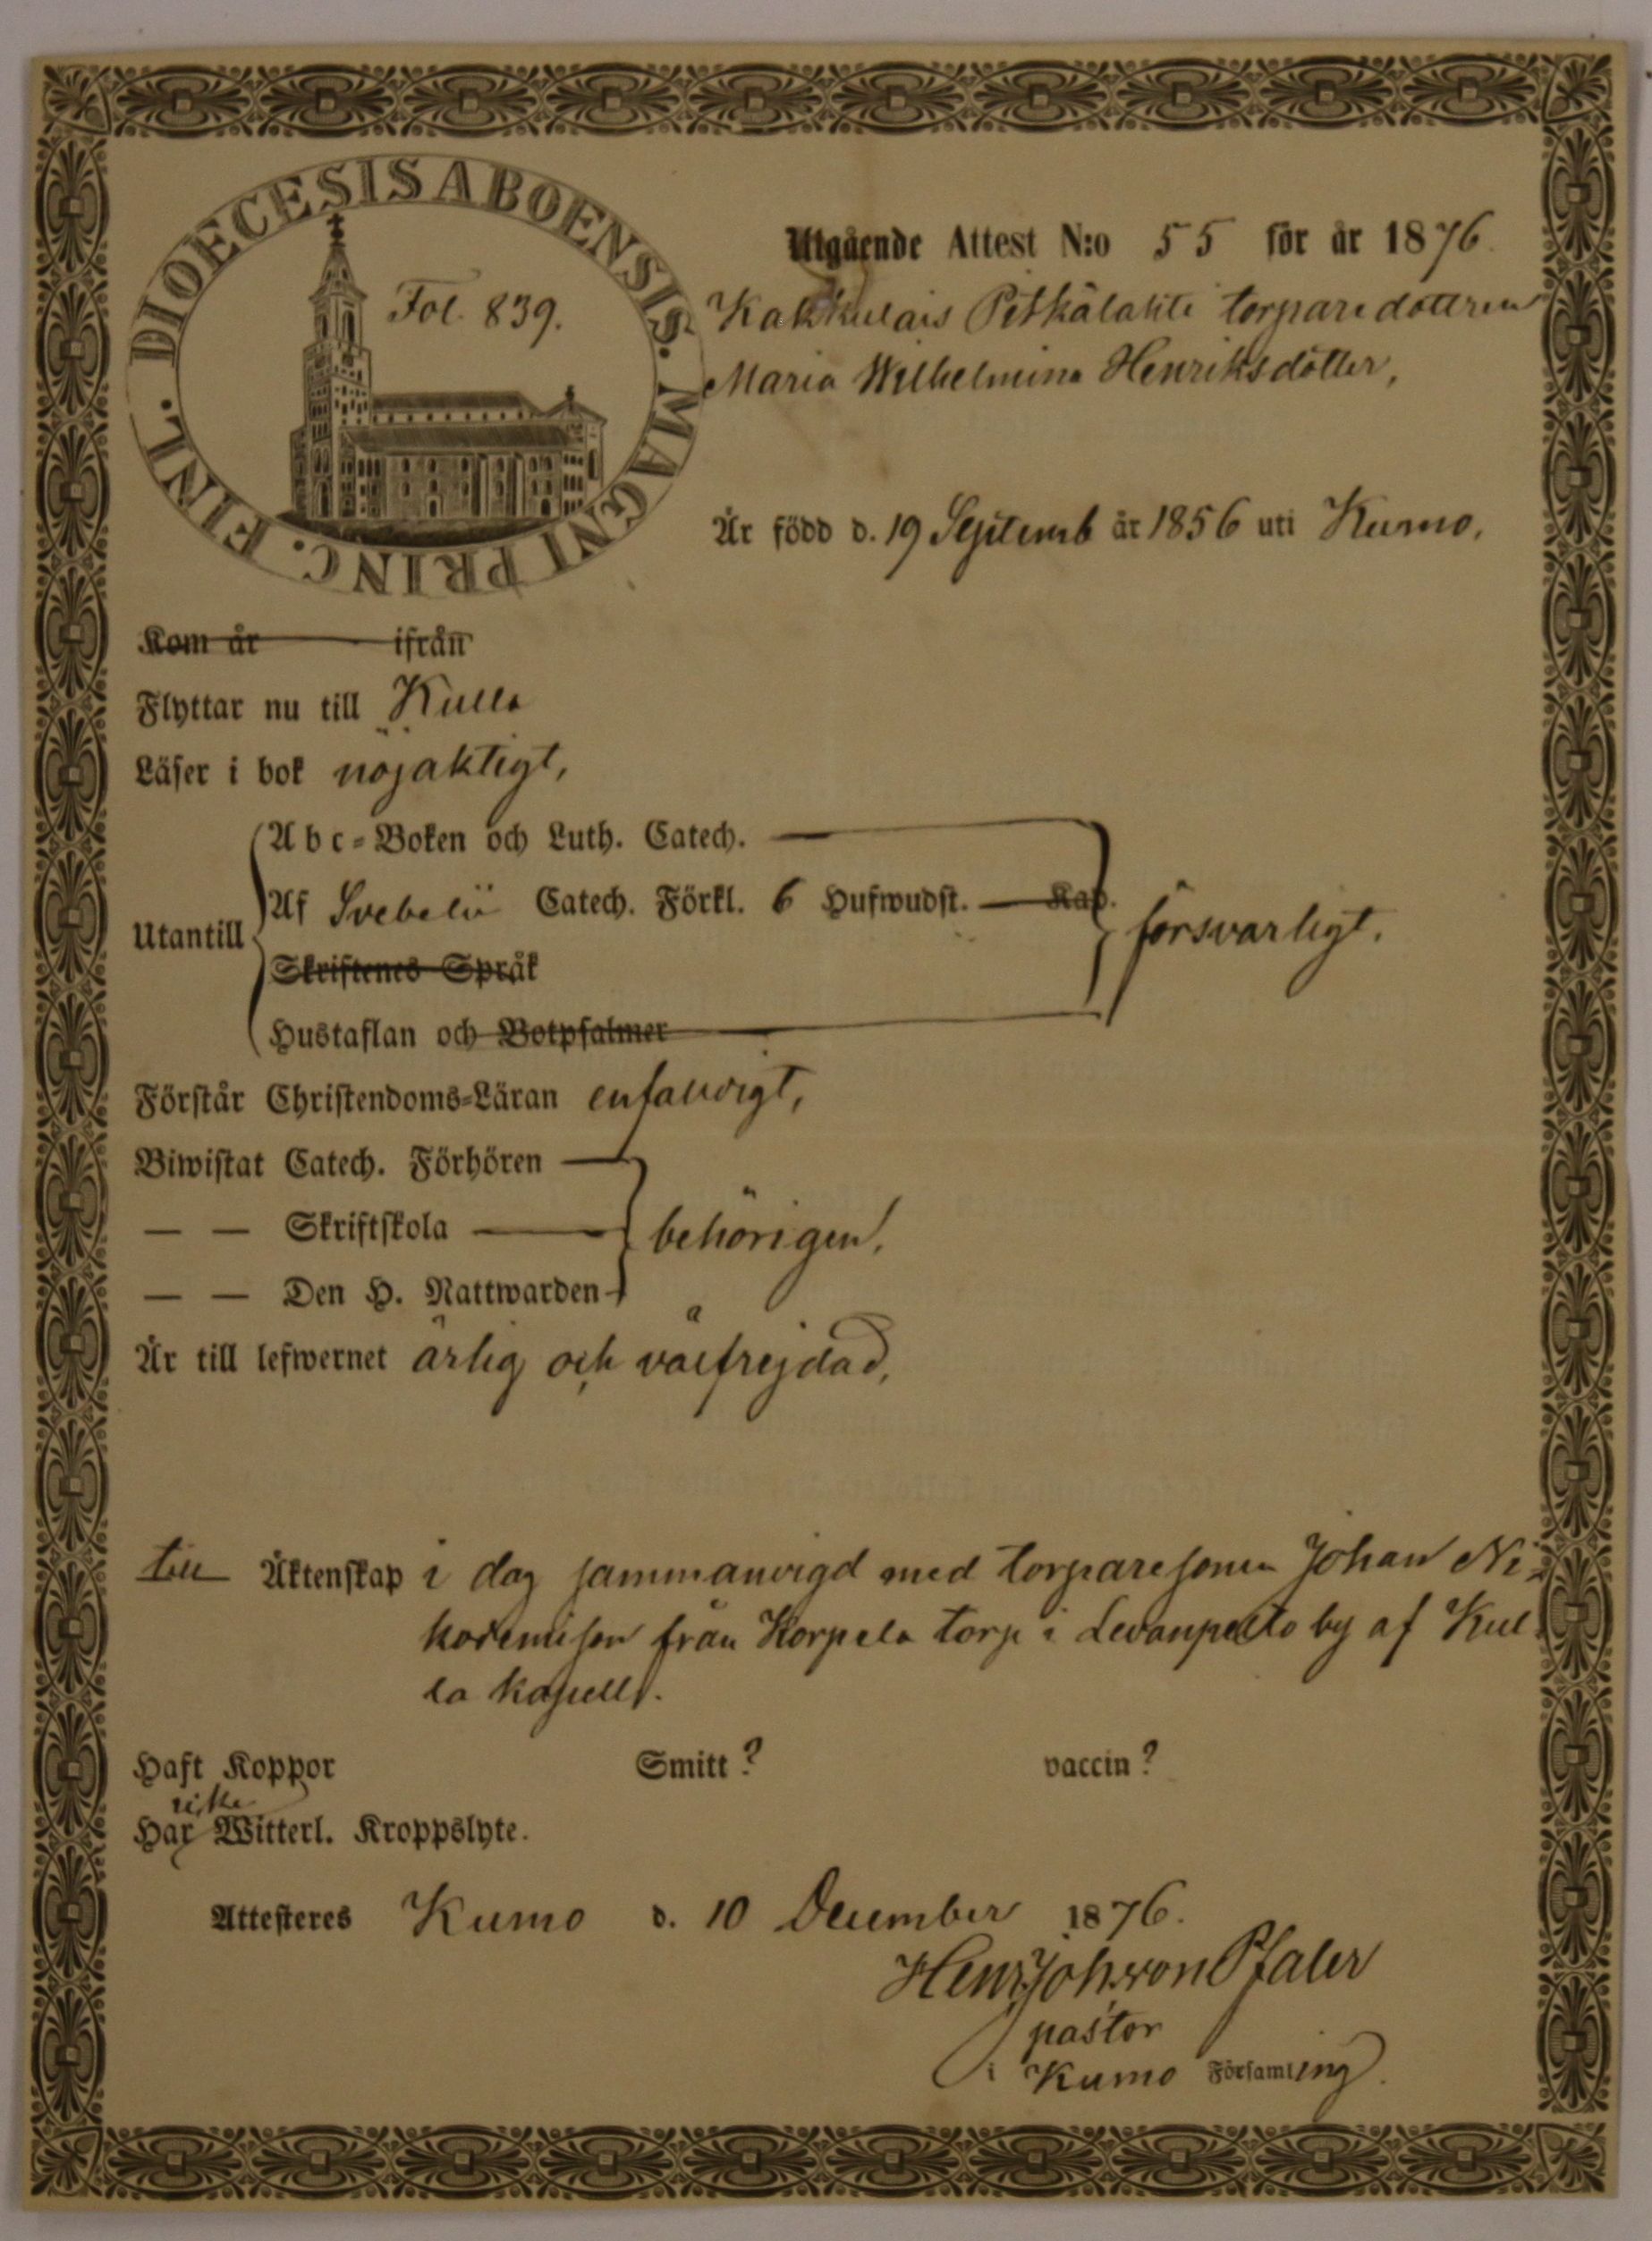 DIOECESIS ABOENSIS. MAGNI PRINC. FINL.
Fol. 839.
Utgående Attest N:o 55 för år 1876.
Kakkulais Pitkälahti torparedottren
Maria Wilhelmina Henriksdotter,
Är född d. 19 Septemb år 1856 uti Kumo.
Kom år ifrån
Flyttar nu till Kulla
Läser i bok nöjaktigt,
Abc-Boken och Luth. Catech.
Af Svebelii Catech. Förkl. 6 Hufwudst. Kap.
Utantill försvarligt.
Skriftenes Språk
Hustaflan och Botpsalmer
Förstår Christendoms-Läran enfaldigt,
Biwistat Catech. Förhören
— — Skriftskola behörigen,
— — Den H. Nattwarden
Är till lefwernet ärlig och välfrejdad,
till Äktenskap i dag sammanvigd med torparesonen Johan Ni-
kodemisson från Korpela torp i Levanpelto by af Kul-
la kapell.
Haft Koppor Smitt? vaccin?
icke
Har Witterl. Kroppslyte.
Attesteres Kumo d. 10 December 1876.
Henr. Joh. von Pfaler
pastor
i Kumo Församling.